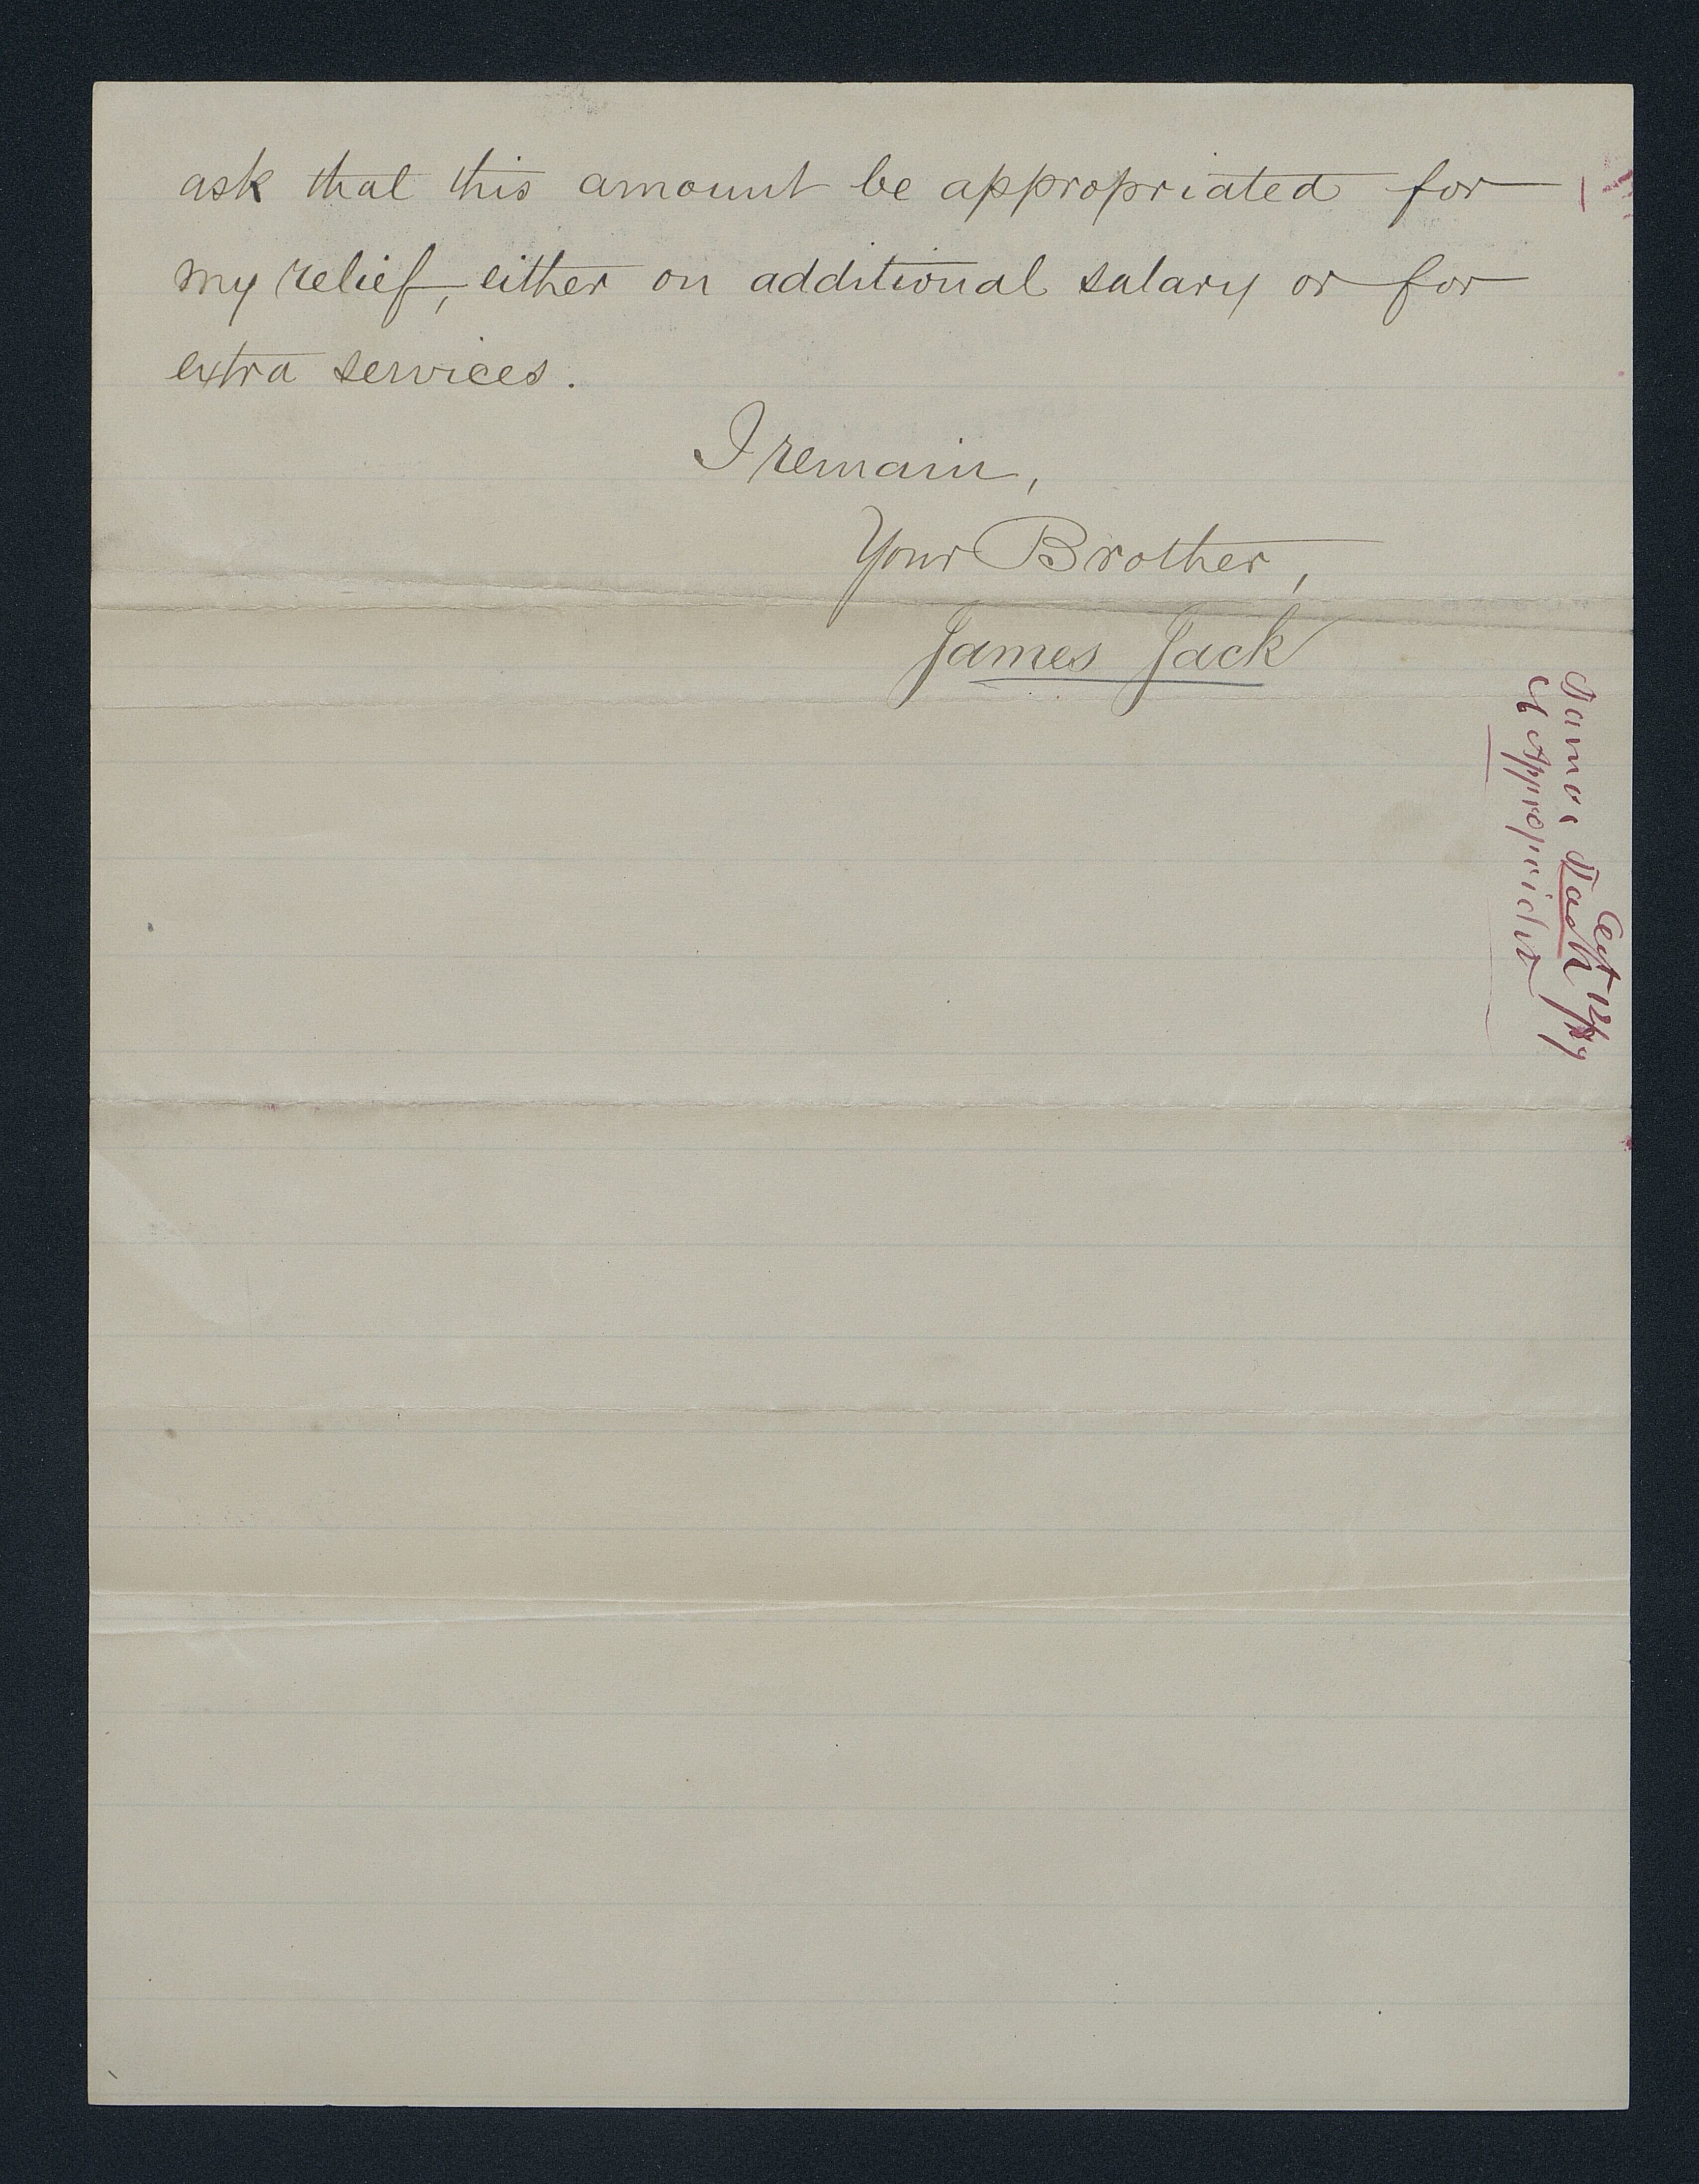 ask that this amount be appropriated for
my relief, either on additional salary or for
extra services.
I remain,
Your Brother,
James Jack
James Jack